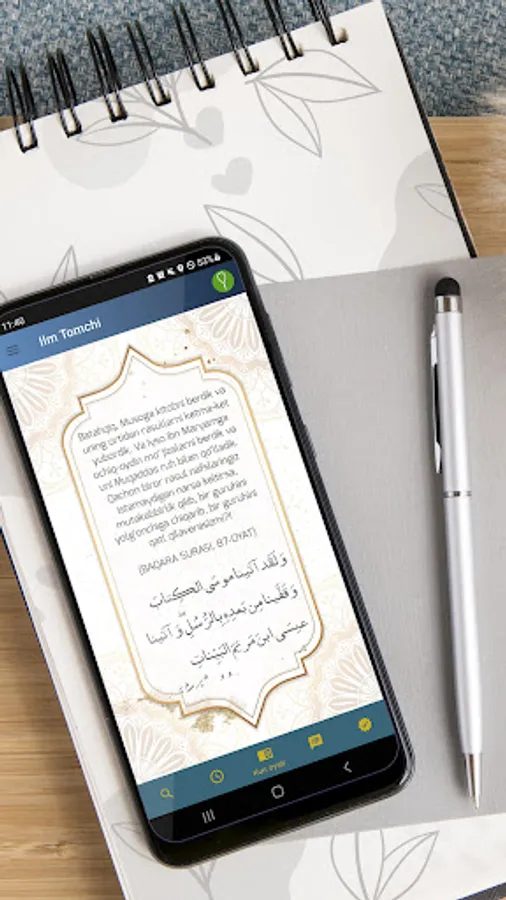 11:40
52%
Ilm Tomchi
Batahqiq, Musoga kitobni berdik va
uning ortidan rasullarni ketma-ket
yubordik. Va Iyso ibn Maryamga
ochiq-oydin mo''jizalarni berdik va
uni Muqaddas ruh bilan qo'lladik.
Qachon biror rasul nafslaringiz
istamaydigan narsa keltirsa,
mutakabbirlik qilib, bir guruhini
yolg'onchiga chiqarib, bir guruhini
qatl qilaverasizmi?!
(BAQARA SURASI, 87-OYAT)
وَ لَقَد آتَينا موسَى الكِتابَ
وَ قَفَّينا مِن بَعدِهِ بِالرُّسُلِ وَ آتَينا
عيسَى ابنَ مَريَمَ البَيِّناتِ
Kun oyati